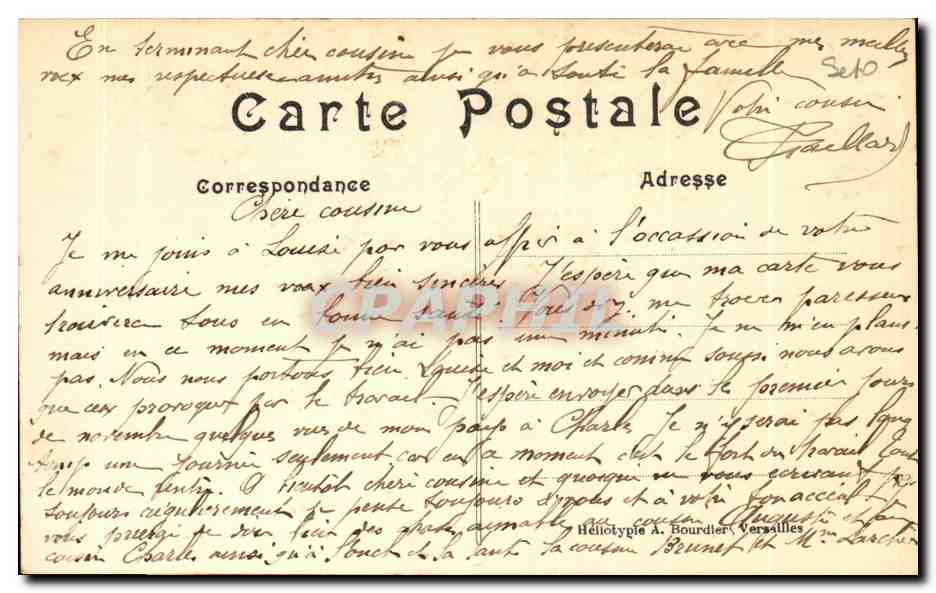 En terminant chère cousine je vous présenterai avec mes meilleurs
vœux mes respectueuses amitiés ainsi qu'à toute la famille
Votre cousin
Carte Postale
Correspondance
Adresse
Chère cousine
Je me joins à Louise pour vous offrir à l'occassion de votre
anniversaire mes vœux bien sincères J'espère que ma carte vous
trouvera tous en bonne santé. Vous me trouver paresseux
mais en ce moment je n'ai pas une minute. Je ne m'en plains
pas. Nous nous portons bien Louise et moi et comme soucis nous avons
que ceux provoquet par le travail. J'espère envoyer dans les premier jours
de novembre quelques vues de mon pays à Charles Je n'y serai pas long
temps une journée seulement car en ce moment c'est le fort du travail tout
le monde rentre. A bientôt chère cousine et quoique ne vous écrivant pas
toujours régulièrement je pense toujours à vous et à votre bon accueil je
vous prierai de dire bien des choses aimable au cousin Auguste et au
cousin Charles ainsi qu'à la cousine Brunet et Mme
Héliotypie A. Bourdier, Versailles
CPAPHIL